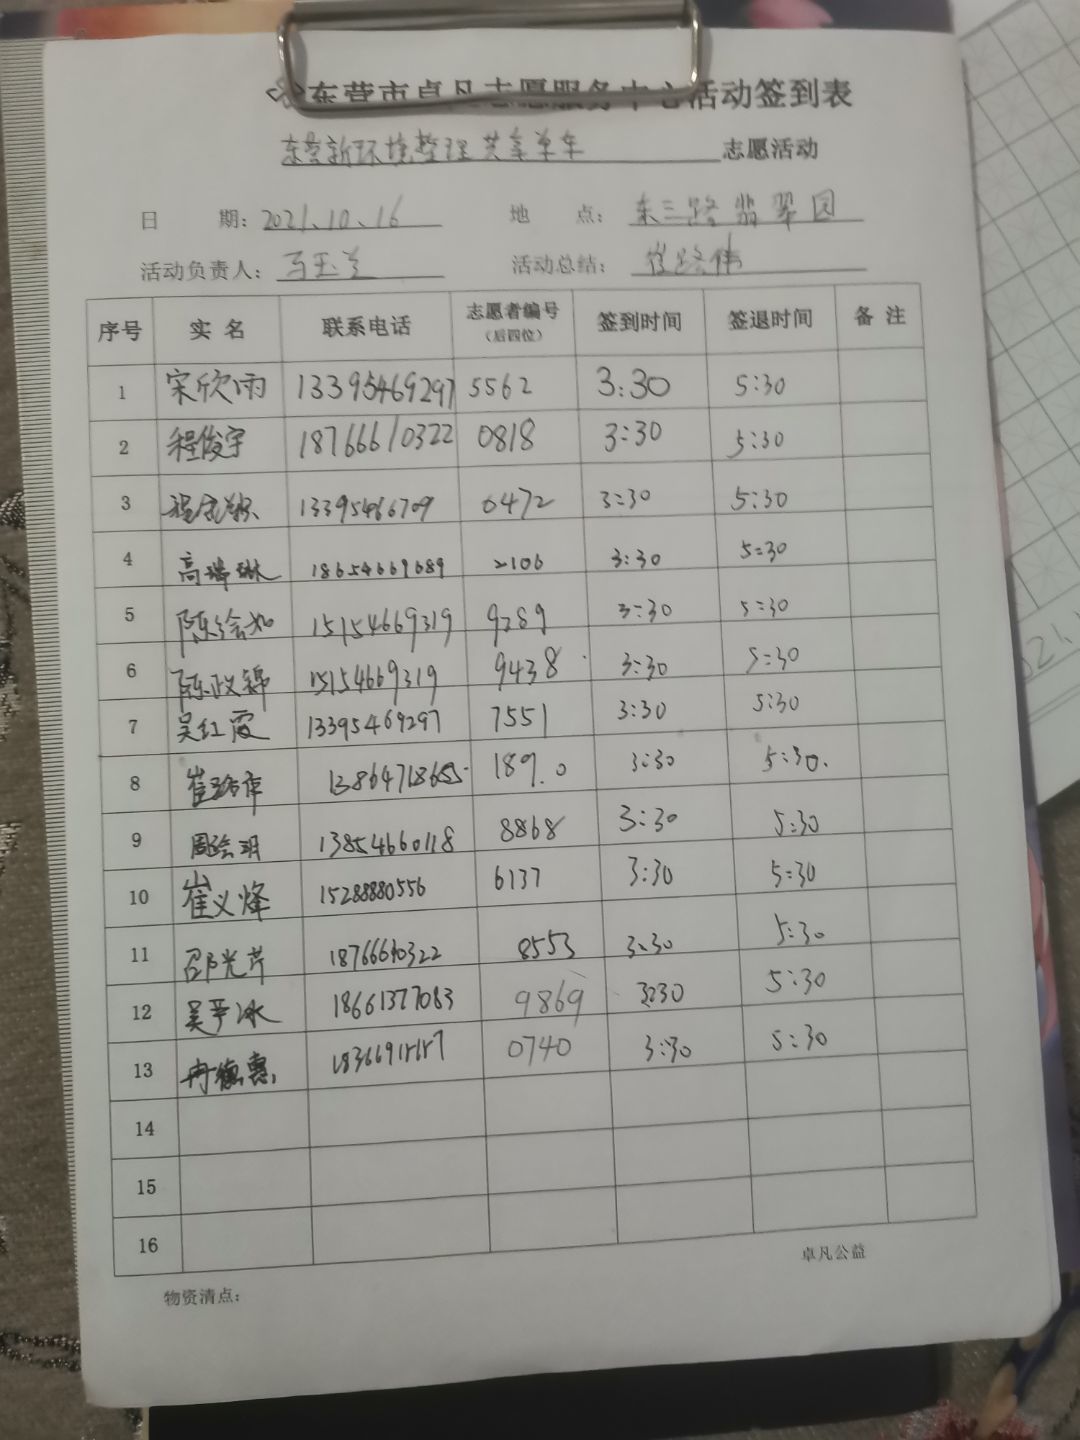 东营市卓凡志愿服务中心活动签到表
东营新环境整理共享单车 志愿活动
日 期：2021.10.16 地 点：东三路翡翠园
活动负责人：马玉兰 活动总结：崔路伟
序号 实名 联系电话 志愿者编号（后四位） 签到时间 签退时间 备注
1 宋欣雨 13395469297 5562 3:30 5:30
2 程俊宇 18766610322 0818 3:30 5:30
3 13395466709 6472 3:30 5:30
4 高瑞琳 18654669689 2106 3:30 5:30
5 陈绘如 15154669319 9289 3:30 5:30
6 陈政锦 15154669319 9438 3:30 5:30
7 吴红霞 13395469297 7551 3:30 5:30
8 189.0 3:30 5:30.
9 周绘玥 13854660118 8868 3:30 5:30
10 崔义烽 15288880556 6137 3:30 5:30
11 邵光芹 18766610322 8553 3:30 5:30
12 18661377083 9869 3:30 5:30
13 冉德惠 0740 3:30 5:30
14
15
16
卓凡公益
物资清点：